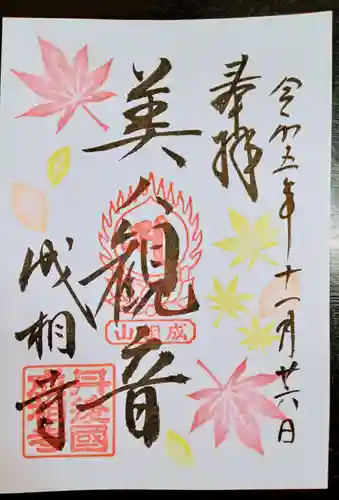 奉拝
令和五年十一月廿六日
美人観音
成相山
成相寺
丹後國
成相寺